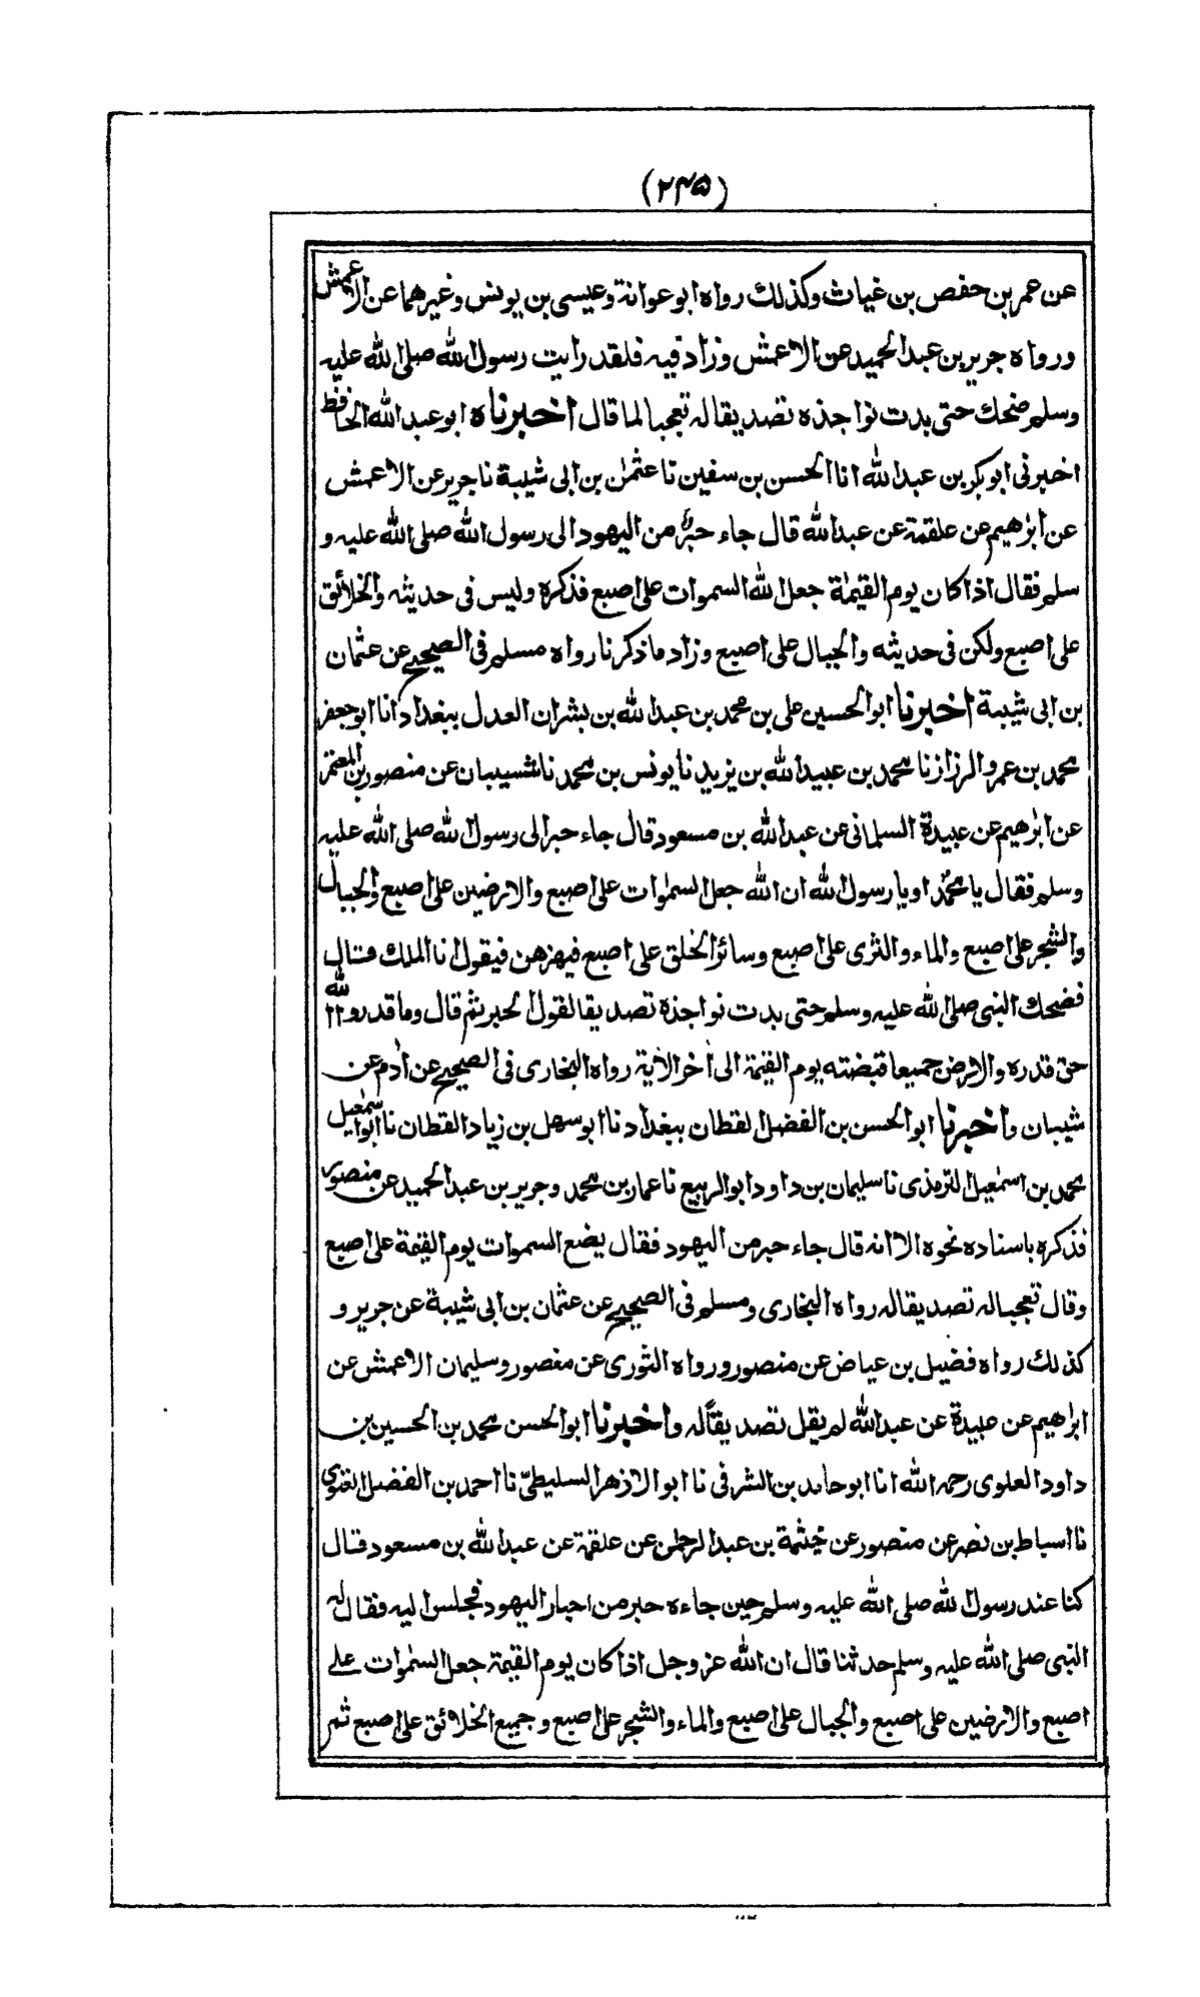 (۲۴۵)
عن عمر بن حفص بن غياث وكذلك رواه ابو عوانة وعيسى بن يونس وغيرهما عن الاعمش
ورواه جرير بن عبد الحميد عن الاعمش وزاد فيه فلقد رايت رسول الله صلى الله عليه
وسلم ضحك حتى بدت نواجذه تصديقا له تعجبا لما قال اخبرناه ابو عبد الله الحافظ
اخبرنى ابو بكر بن عبد الله انا الحسن بن سفين نا عثمٰن بن ابى شيبة نا جرير عن الاعمش
عن ابرٰهيم عن علقمة عن عبد الله قال جاء حبر من اليهود الى رسول الله صلى الله عليه و
سلم فقال اذا كان يوم القيمٰة جعل الله السموات على اصبع فذكره وليس فى حديثه والخلائق
على اصبع ولكن فى حديثه والجبال على اصبع وزاد ما ذكرنا رواه مسلم فى الصحيح عن عثمان
بن ابى شيبة اخبرنا ابو الحسين على بن محمد بن عبد الله بن بشران العدل ببغداد انا ابو جعفر
محمد بن عمرو الرزاز نا محمد بن عبيد الله بن يزيد نا يونس بن محمد نا شيبان عن منصور بن المعتمر
عن ابرٰهيم عن عبيدة السلمانى عن عبد الله بن مسعود قال جاء حبر الى رسول الله صلى الله عليه
وسلم فقال يا محمد او يا رسول الله ان الله جعل السمٰوات على اصبع والارضين على اصبع والجبال
والشجر على اصبع والماء والثرى على اصبع وسائر الخلق على اصبع فيهزهن فيقول انا الملك قال
فضحك النبى صلى الله عليه وسلم حتى بدت نواجذه تصديقا لقول الحبر ثم قال وما قدروا الله
حق قدره والارض جميعا قبضته يوم القيمة الى أخر الأية رواه البخارى فى الصحيح عن أدم عن
شيبان واخبرنا ابو الحسن بن الفضل القطان ببغداد نا ابو سهل بن زياد القطان نا ابو اسمٰعيل
محمد بن اسمٰعيل الترمذى نا سليمان بن داود ابو الربيع نا عمار بن محمد وجرير بن عبد الحميد عن منصور
فذكره باسناده نحوه الا انه قال جاء حبر من اليهود فقال يضع السموات يوم القيمة على اصبع
وقال تعجبا له تصديقا له رواه البخارى ومسلم فى الصحيح عن عثمان بن ابى شيبة عن جرير و
كذلك رواه فضيل بن عياض عن منصور ورواه الثورى عن منصور وسليمان الاعمش عن
ابراهيم عن عبيدة عن عبد الله لم يقل تصديقًا له واخبرنا ابو الحسن محمد بن الحسين بن
داود العلوى رحمه الله انا ابو حامد بن الشرقى نا ابو الازهر السليطىّ نا احمد بن الفضل
نا اسباط بن نصر عن منصور عن خيثمة بن عبد الرحمٰن عن علقمة عن عبد الله بن مسعود قال
كنا عند رسول الله صلى الله عليه وسلم حين جاءه حبر من احبار اليهود فجلس اليه فقال له
النبى صلى الله عليه وسلم حدثنا قال ان الله عز وجل اذا كان يوم القيمة جعل السمٰوات على
اصبع والارضين على اصبع والجبال على اصبع والماء والشجر على اصبع وجميع الخلائق على اصبع ثم